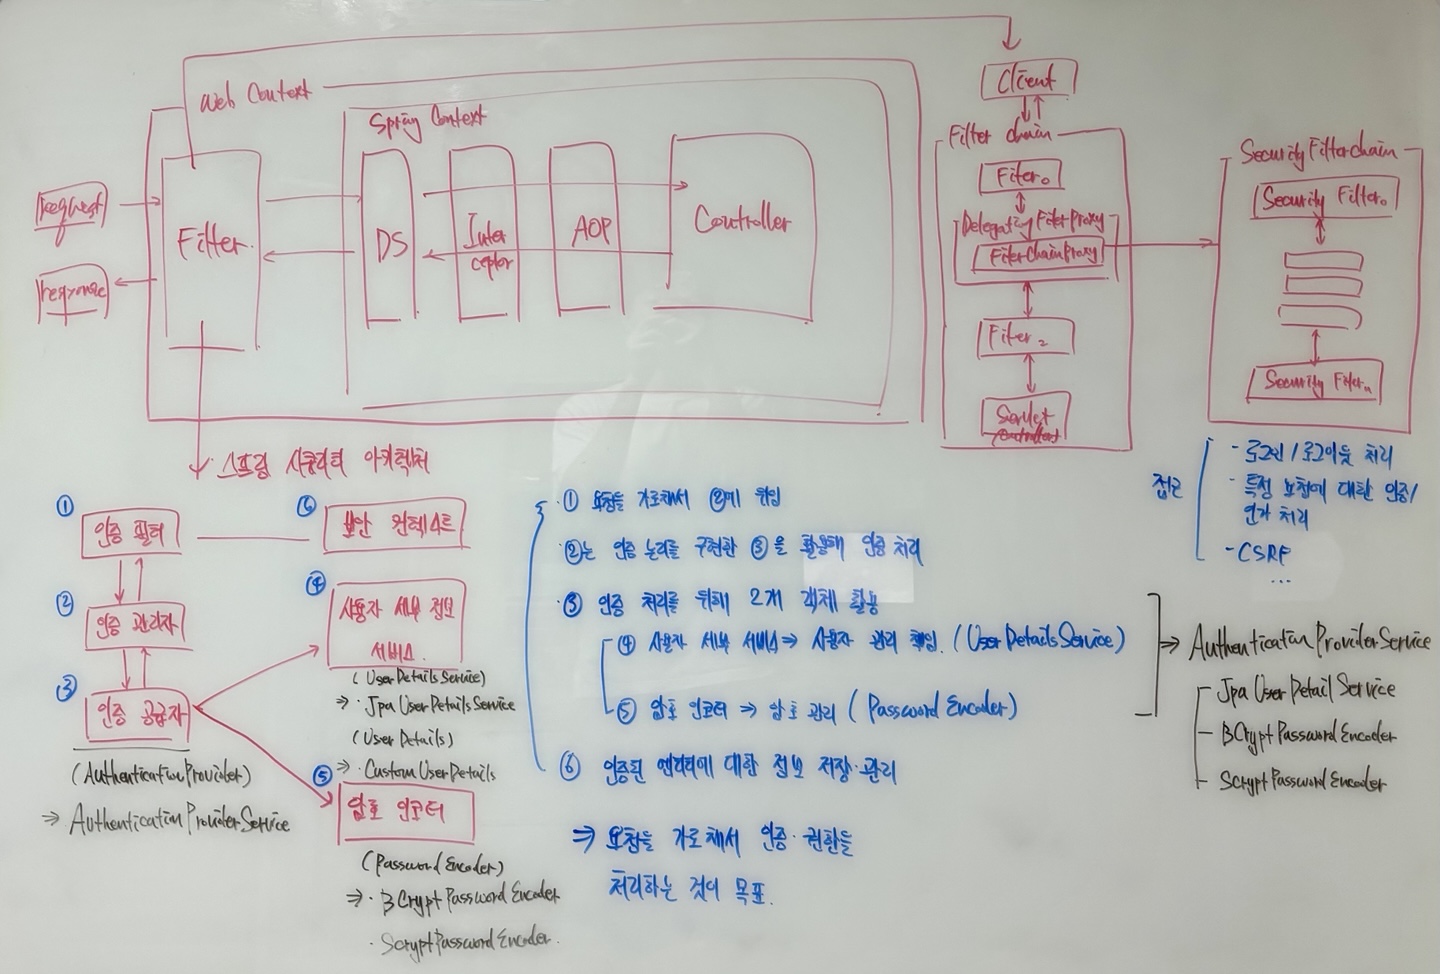 Web Context
Spring Context
request
response
Filter
DS
Inter
ceptor
AOP
Controller
Client
Filter chain
Filter0
Delegating FilterProxy
FilterChainProxy
Filter2
Servlet
Controller
SecurityFilterchain
Security Filter0
Security Filtern
스프링 시큐리티 아키텍처
①
인증 필터
②
인증 관리자
③
인증 공급자
(AuthenticationProvider)
⇒ AuthenticationProviderService
⑥
보안 컨텍스트
④
사용자 세부 정보
서비스
(UserDetailsService)
⇒ · Jpa UserDetailsService
(User Details)
⇒ · CustomUserDetails
⑤
암호 인코더
(Password Encoder)
⇒ · BCryptPassword Encoder
· ScryptPassword Encoder
① 요청을 가로채서 ②에 위임
②는 인증 논리를 구현한 ③을 활용해 인증 처리
③ 인증 처리를 위해 2개 객체 활용
④ 사용자 세부 서비스 ⇒ 사용자 관리 책임 (UserDetailsService)
⑤ 암호 인코더 ⇒ 암호 관리 (Password Encoder)
⑥ 인증된 엔티티에 대한 정보 저장·관리
⇒ 요청을 가로채서 인증·권한을
처리하는 것이 목표.
접근
- 로그인/로그아웃 처리
- 특정 요청에 대한 인증/
인가 처리
- CSRF
...
⇒ AuthenticationProviderService
Jpa User Detail Service
BCrypt Password Encoder
Scrypt Password Encoder